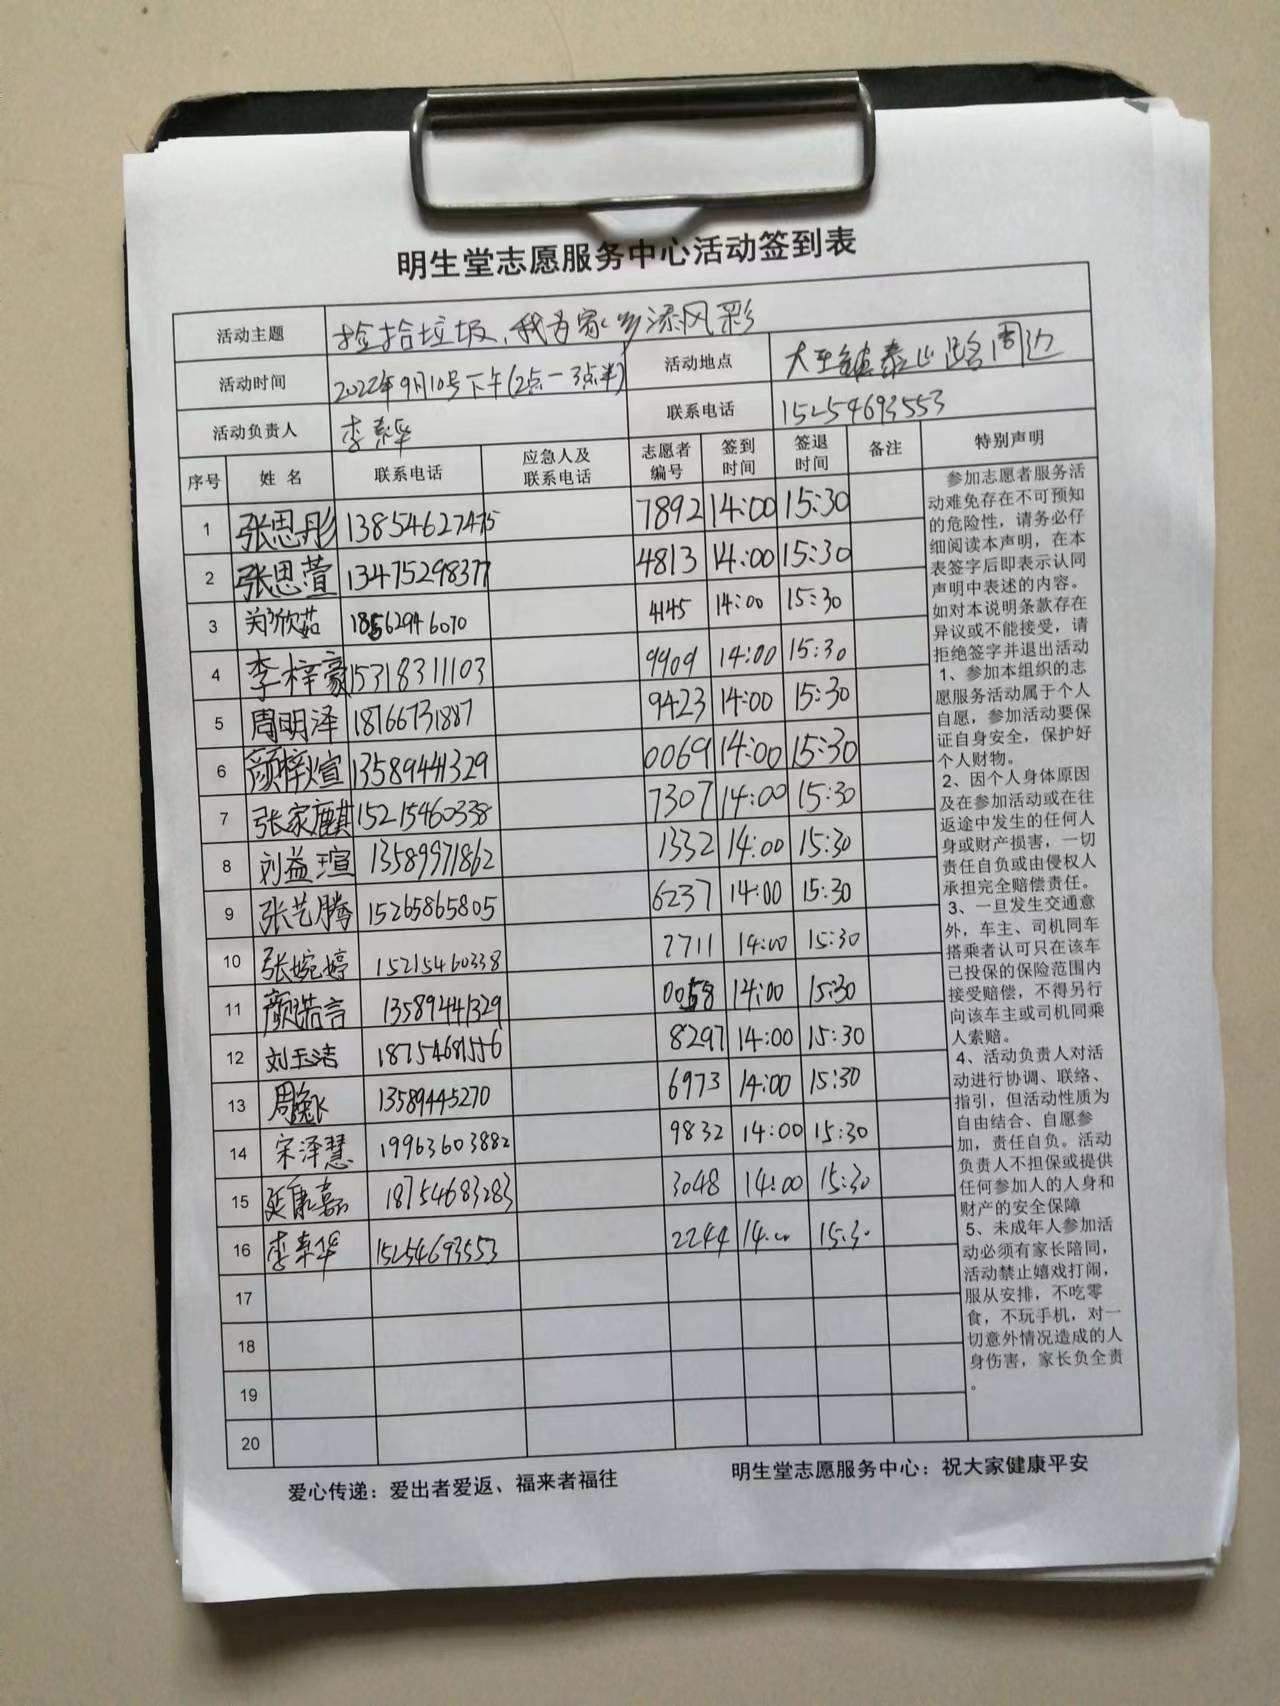 明生堂志愿服务中心活动签到表
活动主题 捡拾垃圾,我为家乡添风彩
活动时间 2022年9月10号下午(2点-3点半) 活动地点 大王镇泰山路周边
活动负责人 李素华 联系电话 15254693553
序号 姓名 联系电话 应急人及联系电话 志愿者编号 签到时间 签退时间 备注 特别声明
1 张思彤 13854627475 7892 14:00 15:30
2 张思萱 13475298377 4813 14:00 15:30
3 郑欣茹 18562946070 4145 14:00 15:30
4 李梓豪 15318311103 9909 14:00 15:30
5 周明泽 18766731887 9423 14:00 15:30
6 颜梓煊 13589441329 0069 14:00 15:30
7 张家麒 15215460338 7307 14:00 15:30
8 刘益瑄 13589971862 1332 14:00 15:30
9 张艺腾 15265865805 6237 14:00 15:30
10 张婉婷 15215460338 7711 14:00 15:30
11 颜诺言 13589441329 0058 14:00 15:30
12 刘玉洁 18754681556 8297 14:00 15:30
13 周逸飞 13589445270 6973 14:00 15:30
14 宋泽慧 19963603882 9832 14:00 15:30
15 延康嘉 18754683283 3048 14:00 15:30
16 李素华 15254693553 2244 14:00 15:30
17
18
19
20
参加志愿者服务活
动难免存在不可预知
的危险性，请务必仔
细阅读本声明，在本
表签字后即表示认同
声明中表述的内容。
如对本说明条款存在
异议或不能接受，请
拒绝签字并退出活动
1、参加本组织的志
愿服务活动属于个人
自愿，参加活动要保
证自身安全，保护好
个人财物。
2、因个人身体原因
及在参加活动或在往
返途中发生的任何人
身或财产损害，一切
责任自负或由侵权人
承担完全赔偿责任。
3、一旦发生交通意
外，车主、司机同车
搭乘者认可只在该车
已投保的保险范围内
接受赔偿，不得另行
向该车主或司机同乘
人索赔。
4、活动负责人对活
动进行协调、联络、
指引，但活动性质为
自由结合、自愿参
加，责任自负。活动
负责人不担保或提供
任何参加人的人身和
财产的安全保障
5、未成年人参加活
动必须有家长陪同，
活动禁止嬉戏打闹，
服从安排，不吃零
食，不玩手机，对一
切意外情况造成的人
身伤害，家长负全责
。
爱心传递：爱出者爱返、福来者福往 明生堂志愿服务中心：祝大家健康平安